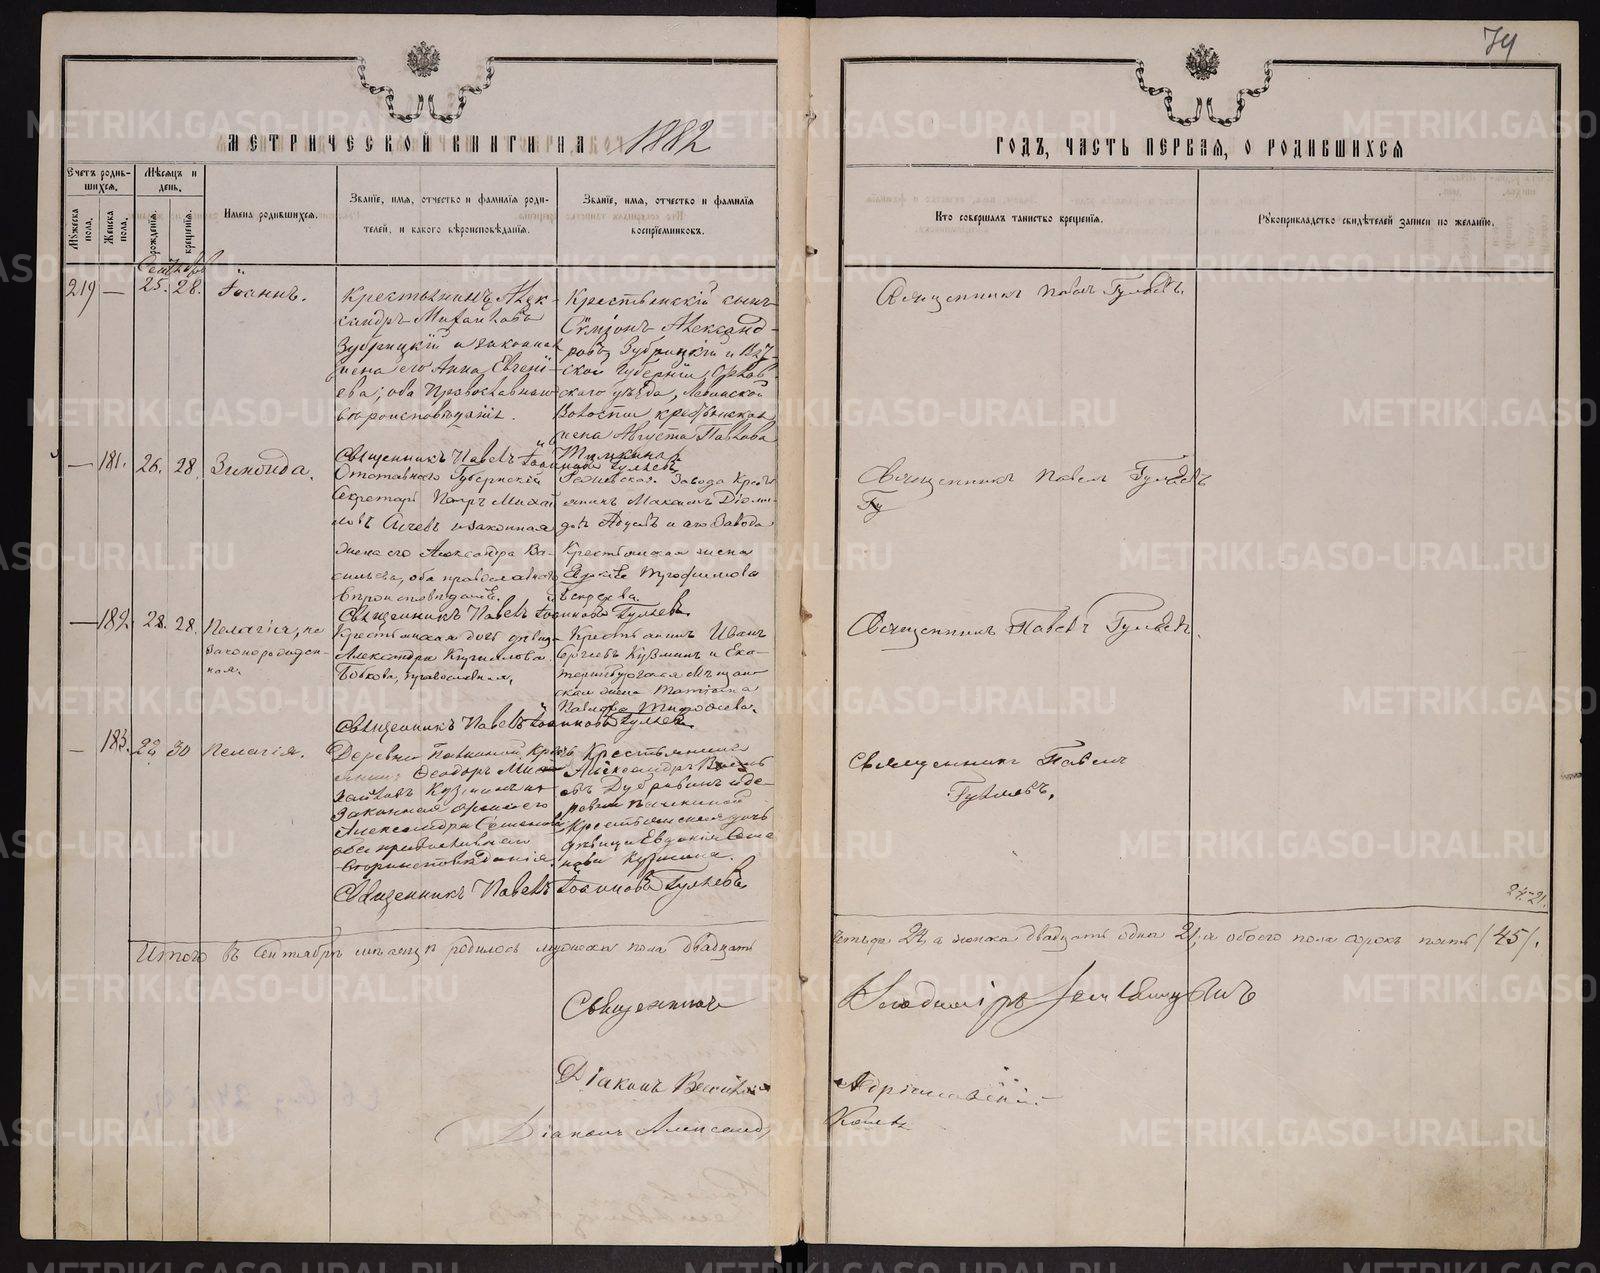 74
МЕТРИЧЕСКОЙ КНИГИ НА 1882
ГОДЪ, ЧАСТЬ ПЕРВАЯ, О РОДИВШИХСЯ
Счетъ родившихся.
Мѣсяцъ и день.
Мужеска пола.
Женска пола.
рожденія.
крещенія.
Имена родившихся.
Званіе, имя, отчество и фамилія роди-
телей, и какого вѣроисповѣданія.
Званіе, имя, отчество и фамилія
воспріемниковъ.
Кто совершалъ таинство крещенія.
Рукоприкладство свидѣтелей записи по желанію.
Сентябрь
219 — 25. 28. Іоаннъ.
Крестьянинъ Алек-
сандръ Михайловъ
Зубрицкій и законная
жена его Анна Евгені-
ева, оба Православнаго
вѣроисповѣданія.
Крестьянскій сынъ
Симеонъ Александ-
ровъ Зубрицкій и Вят-
ской Губерніи, Орлов-
скаго уѣзда,
Волости крестьянская
жена Августа Павлова
Священникъ Павелъ Гуляевъ.
Священникъ Павелъ Іоанновъ Гуляевъ
— 181. 26. 28. Зинаида.
Отставнаго Губернскій
Секретарь Петръ Михай
ловъ и законная
жена его Александра Ва-
сильева, оба православнаго
вѣроисповѣданія.
Завода Кресть
янинъ Максимъ Діоми-
довъ и того завода
Крестьянская жена
Трофимова
Священникъ Павелъ Гуляевъ
Гу
Священникъ Павелъ Іоанновъ Гуляевъ.
— 182. 28. 28. Пелагія, не
законорожден-
ная.
Крестьянская дочь дѣвица
Александра Кириллова
Бобкова, православная.
Крестьянинъ Иванъ
Сергѣевъ Кузминъ и Ека-
теринбургская Мѣщан-
ская жена Татіана
Павлова
Священникъ Павелъ Гуляевъ.
Священникъ Павелъ Іоанновъ Гуляевъ.
— 183. 29 30 Пелагія.
Деревни Кресть
янинъ Ѳеодоръ Ми-
хайловъ Кузминъ и
законная жена его
Александра Семенова
оба православнаго
вѣроисповѣданія.
Крестьянинъ
Александръ
Дубровинъ и де-
ревни
Крестьянская дочь
дѣвица Евдокія Семе
нова Кузмина.
Священникъ Павелъ
Гуляевъ.
Священникъ Павелъ Іоанновъ Гуляевъ.
24-21.
Итого въ Сентябрѣ мѣсяцѣ родилось мужеска пола двадцать
четыре 24, а женска двадцать одна 21, а обоего пола сорокъ пять /45/.
Священникъ
Владиміръ
Діаконъ Василій
Діаконъ Александръ